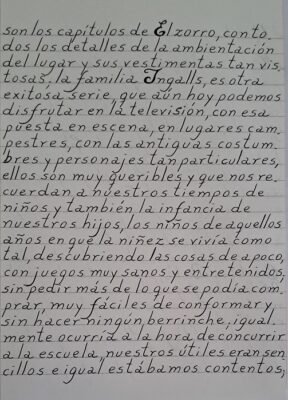 son los capítulos de El zorro, con to
dos los detalles de la ambientación
del lugar y sus vestimentas tan vis
tosas. la familia Ingalls, es otra
exitosa serie que aún hoy podemos
disfrutar en la televisión, con esa
puesta en escena, en lugares cam
pestres, con las antiguas costum
bres y personajes tan particulares,
ellos son muy queribles y que nos re
cuerdan a nuestros tiempos de
niños y también la infancia de
nuestros hijos, los niños de aquellos
años en que la niñez se vivía como
tal, descubriendo las cosas de a poco,
con juegos muy sanos y entretenidos.
sin pedir más de lo que se podía com
prar, muy fáciles de conformar y
sin hacer ningún berrinche, igual.
mente ocurría a la hora de concurrir
a la escuela, nuestros útiles eran sen
cillos e igual estábamos contentos,